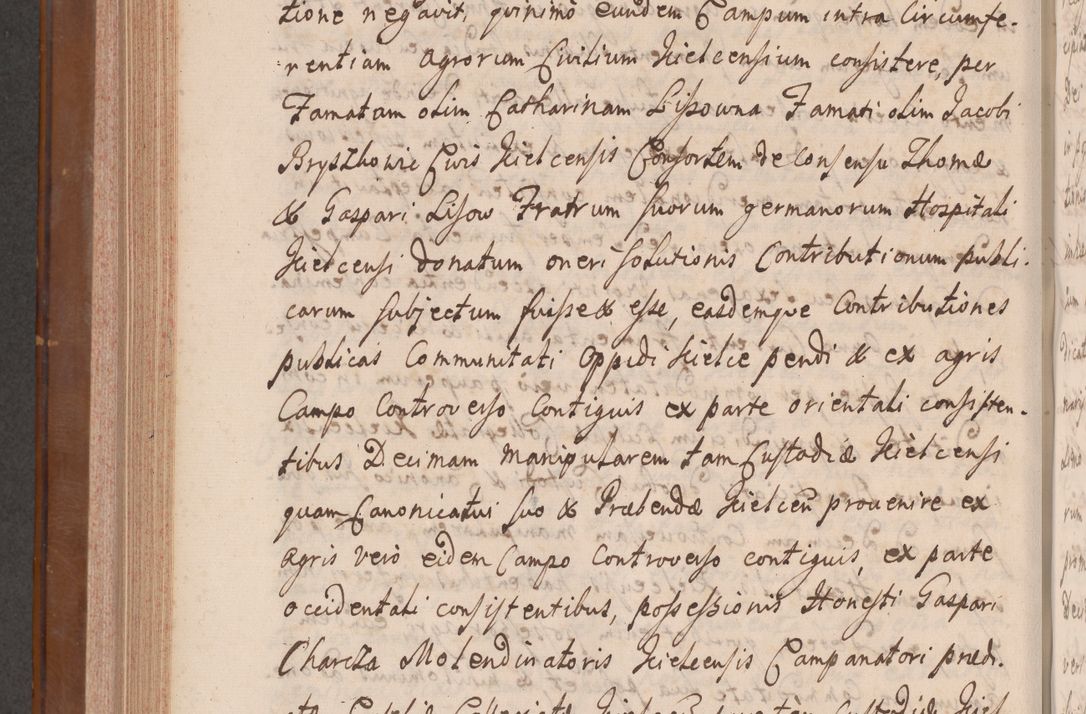 tione negavit, quinimo eundem Campum intra Circumfe-
rentiam agrorum Civilium Kielcensium consistere, per
Famatam olim Catharinam Lisowna Famati olim Jacobi
Bryszkowic Civis Kielcensis Consortem de consensu Thomæ
& Gaspari Lisow Fratrum suorum germanorum Hospitali
Kielcensi donatum oneri solutionis Contributionum publi-
carum subjectum fuisse & esse, easdemque Contributiones
publicas Communitati Oppidi Kielce pendi & ex agris
Campo Controverso Contiguis ex parte orientali consisten-
tibus Decimam manipularem tam Custodiæ Kielcensi
quam Canonicatui suo & Præbendæ Kielcen provenire ex
agris vero eidem Campo Controverso contiguis, ex parte
occidentali consistentibus, possessionis Honesti Gaspari
Charcza Molendinatoris Kielcensis Campanatori prædi-